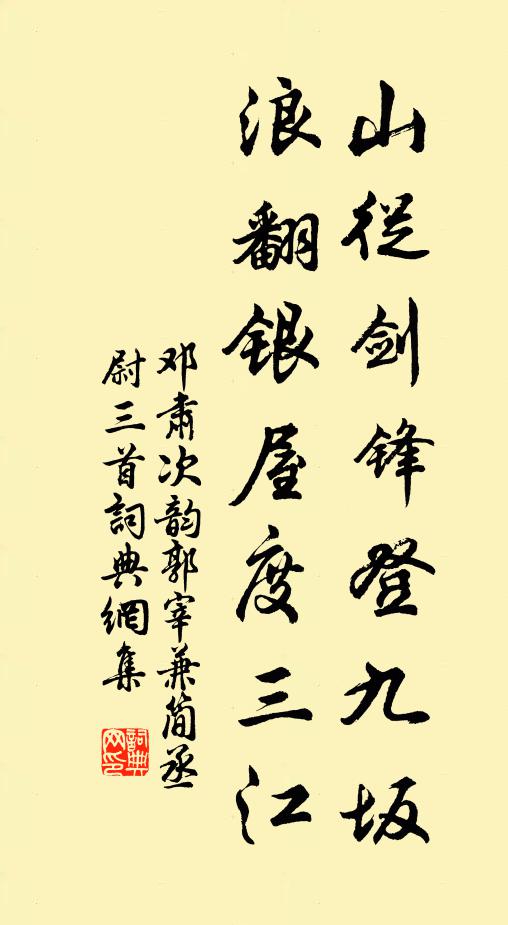 山從剑锋登九坂
浪翻银屋度三江
邓肃次韵郭宰兼简丞
尉三首詞典網集
詞典
网印